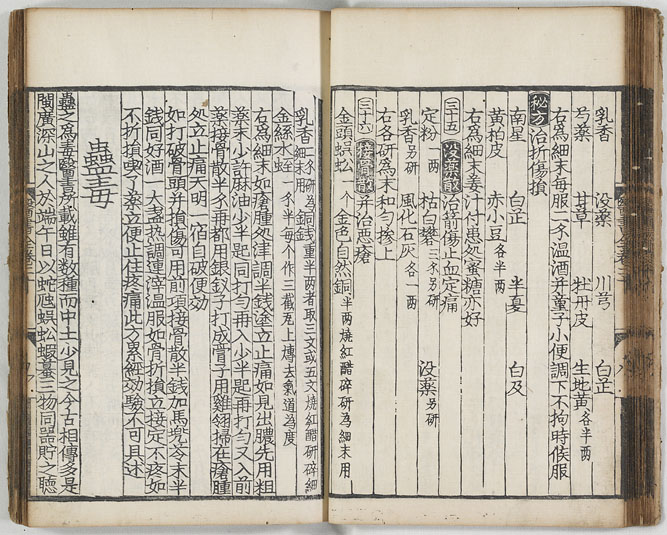 乳香　没薬　川芎　白芷
芍薬　甘草　牡丹皮　生地黄各半两
右為細末每服二钱温酒并童子小便調下不拘時候服
秘方治折傷損
南星　白芷　半夏　白及
黄柏皮　赤小豆各半两
右為細末姜汁付患処蜜糖亦好
三十五　没薬散治箭傷止血定痛
定粉一两　枯白礬三钱另研　没薬另研
乳香另研　風化石灰各一两
右各研為末和匀掺上
三十六　接骨散并治悪瘡
金頭蜈蚣一个　金色自然銅半两燒紅醋碎研為細末用
乳香二钱研為細末用　銅錢重半两者取三文或五文燒紅醋研碎細
金絲水蛭一钱半每个作三截瓦上煿去氣道為度
右為細末如瘡腫処津調半錢塗立止痛如見出膿先用粗
薬末少許麻油少半匙同打匀再入少半匙再打匀又入前
薬接骨散半钱再都用銀釵子打成膏子用雞翎掃在瘡腫
処立止痛天明一宿自破便効
如打破骨頭并損傷可用前項接骨散半錢加馬兜苓末半
錢同好酒一大盞热調連滓温服如骨折損立接定不疼如
不折損喫了薬立便止住疼痛此方累経効驗不可具述
蠱毒
蠱之為毒醫書所載雖有数種而中土少見之今古相傳多是
閩廣深山之人於端午日以蛇虺蜈蚣蝦蟇三物同器貯之聴